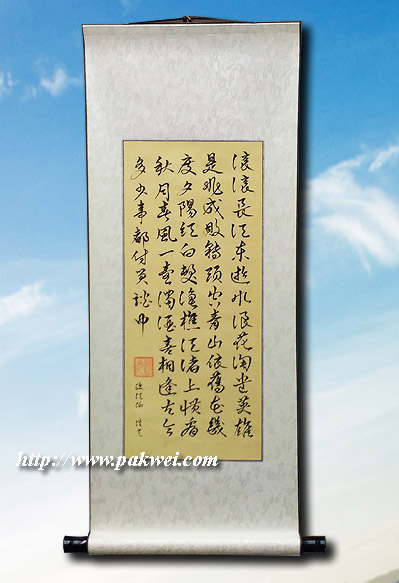 滾滾長江東逝水浪花淘盡英雄
是非成敗轉頭空青山依舊在幾
度夕陽紅白髮漁樵江渚上慣看
秋月春風一壺濁酒喜相逢古今
多少事都付笑談中
臨江仙
http://www.pakwei.com